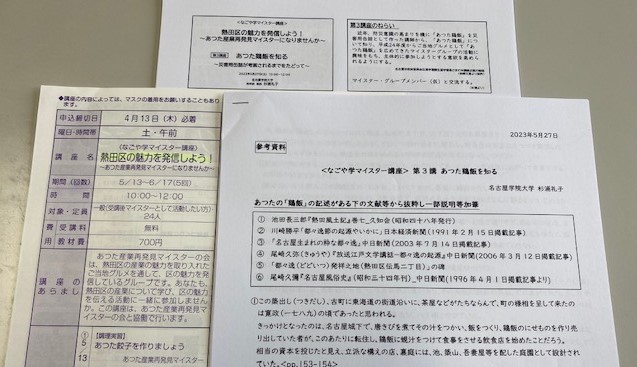 <なごや学マイスター講座>
熱田区の魅力を発信しよう！
～あつた産業再発見マイスターになりませんか～
第3講座 あつた鶏飯を知る
第3講座のねらい
マイスター・グループメンバー(否)と交流する。
◆講座の内容によっては、マスクの着用をお願いすることもあり
ます。
申込締切日 4月13日(木)必着
曜日・時間帯 土・午前
講座名 熱田区の魅力を発信しよう！
～あつた産業再発見マイスターになりませんか～
期間(回数) 5/13～6/17(5回)
時間 10:00～12:00
対象・定員 一般(受講後マイスターとして活動したい方)
24人
費 受講料 無料
用 教材費 700円
講座の
あらまし
あつた産業再発見マイスターの会
は、熱田区の産業の魅力を取り入れた
ご当地グルメを通して、区の魅力を発
信しているグループです。あなたも、
熱田区の産業について学び、区の魅力
を伝える活動に一緒に参加しません
か。この講座は、あつた産業再発見マ
イスターの会と協働で行います。
① 5/13 【調理実習】
あつた餃子を作りましょう
あつた産業再発見マイスター
2023年5月27日
参考資料
<なごや学マイスター講座> 第3講 あつた鶏飯を知る
名古屋学院大学 杉浦礼子
あつたの「鶏飯」の記述がある下の文献等から抜粋し一部説明等加筆
① 池田長三郎『熱田風土記』巻七_久知会(昭和四十八年発行)
② 川崎勝平「都々逸節の起源やいかに」日本経済新聞(1991年2月15日掲載記事)
③ 「名古屋生まれの粋な都々逸」中日新聞(2003年7月14日掲載記事)
④ 尾崎久弥(きゅうや)『放送江戸文学講話-都々逸の起源』中日新聞(2006年3月12日掲載記事)
⑤ 「都々逸(どどいつ)発祥之地(熱田区伝馬二丁目)」の碑
⑥ 尾崎久彌『名古屋風俗史』(昭和三十四年刊)_中日新聞(1996年4月1日掲載記事より)
①この築出し(つきだし)、古町に東海道の街道沿いに、茶屋などがたちならんで、町の様相を呈して来たの
は寛政(一七八九)の頃であったと思われる。
きっかけとなったのは、名古屋城下で、唐きびを煮てその汁をつかい、飯をつくり、鶏飯のにせものを作り売
り出していた者が、このあたりに転住し、鶏飯に蜆汁をつけて食事をさせる飲食店を始めたことだろう。
相当の資本を投じたと見え、立派な構えの店、裏庭には、池、築山、吾妻屋等を配した庭園として設計さ
れていた。<pp.153-154>